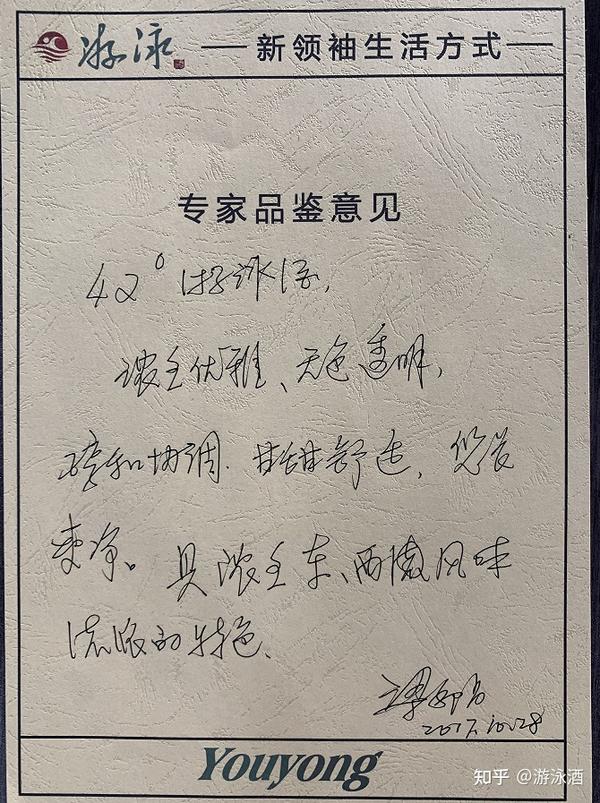 游泳 — 新领袖生活方式 —
专家品鉴意见
42° 游泳酒,
浓王优雅、无色透明,
醇和协调.甘甜舒适,悠长
爽净。具浓王东、西微风味
流派的特色、
2017.10.28
Youyong
知乎 @游泳酒